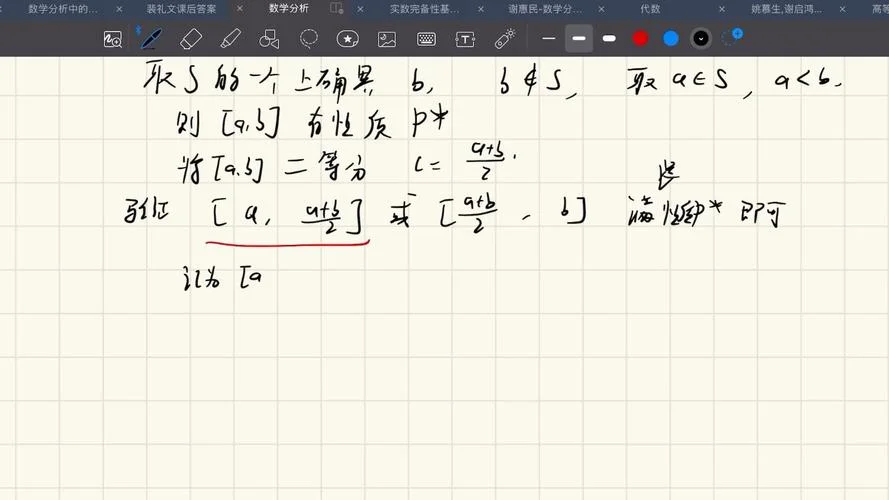 数学分析中的...
裴礼文课后答案
数学分析
实数完备性基...
谢惠民-数学分...
代数
姚慕生,谢启鸿...
高等
取S的一个上确界 b, b∉S, 取 a∈S, a<b,
则 [a,b] 有性质 P*
将[a,b] 二等分 c= a+b/2.
验证 [a, a+b/2] 或 [a+b/2, b] 满足性质P* 即可
记为 [a